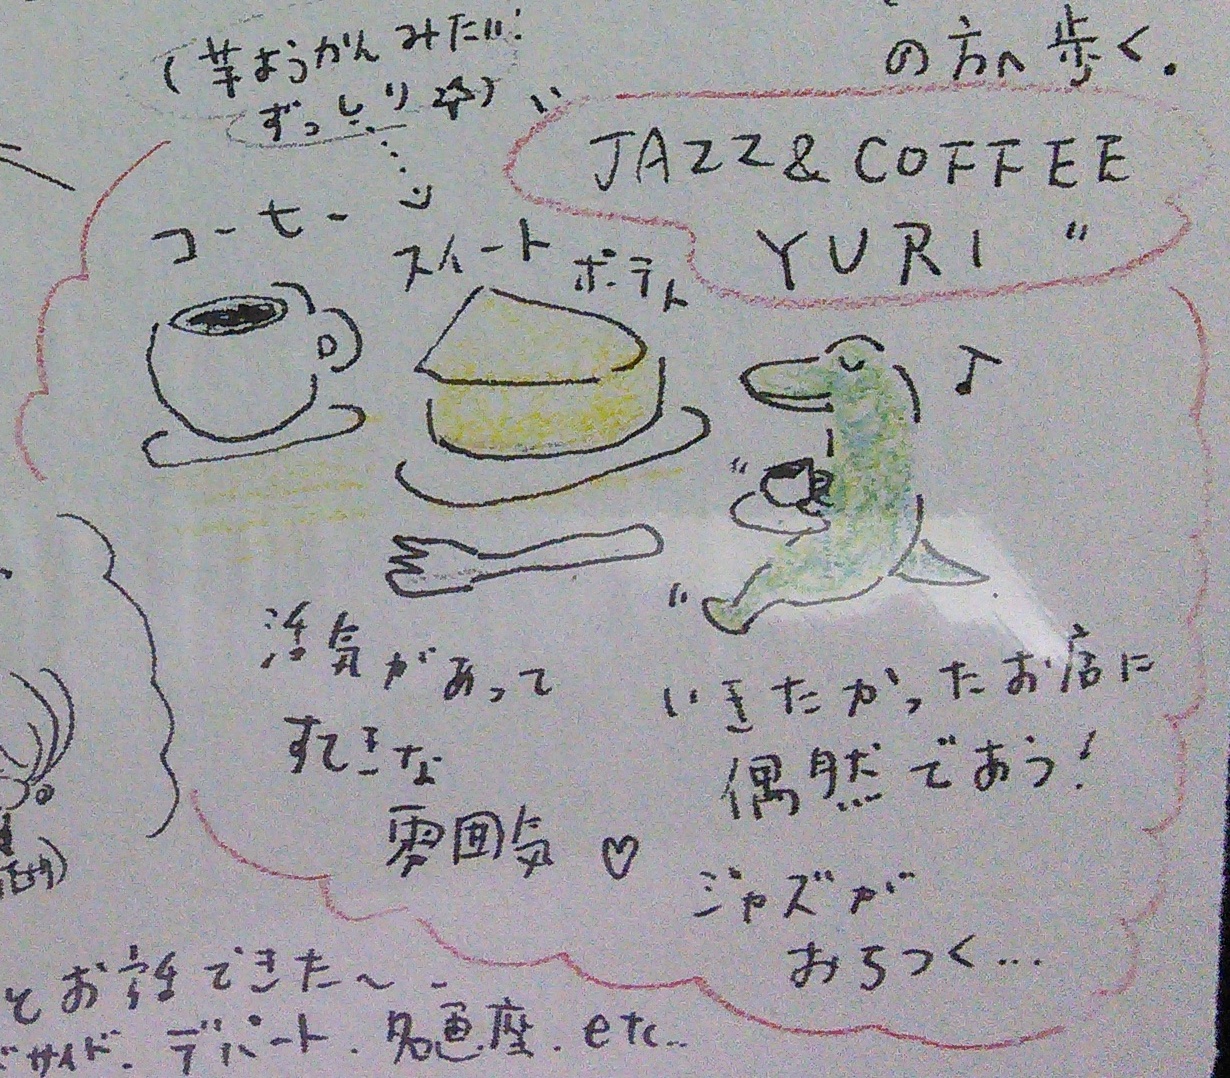 の方へ歩く。
(芋ようかんみたい!
ずっしり☆)
JAZZ & COFFEE
YURI "
コーヒー
スイートポテト
活気があって
すてきな
雰囲気♡
いきたかったお店に
偶然であう!
ジャズが
おちつく...
とお話できたー
サイド.デパート.名画座.etc..